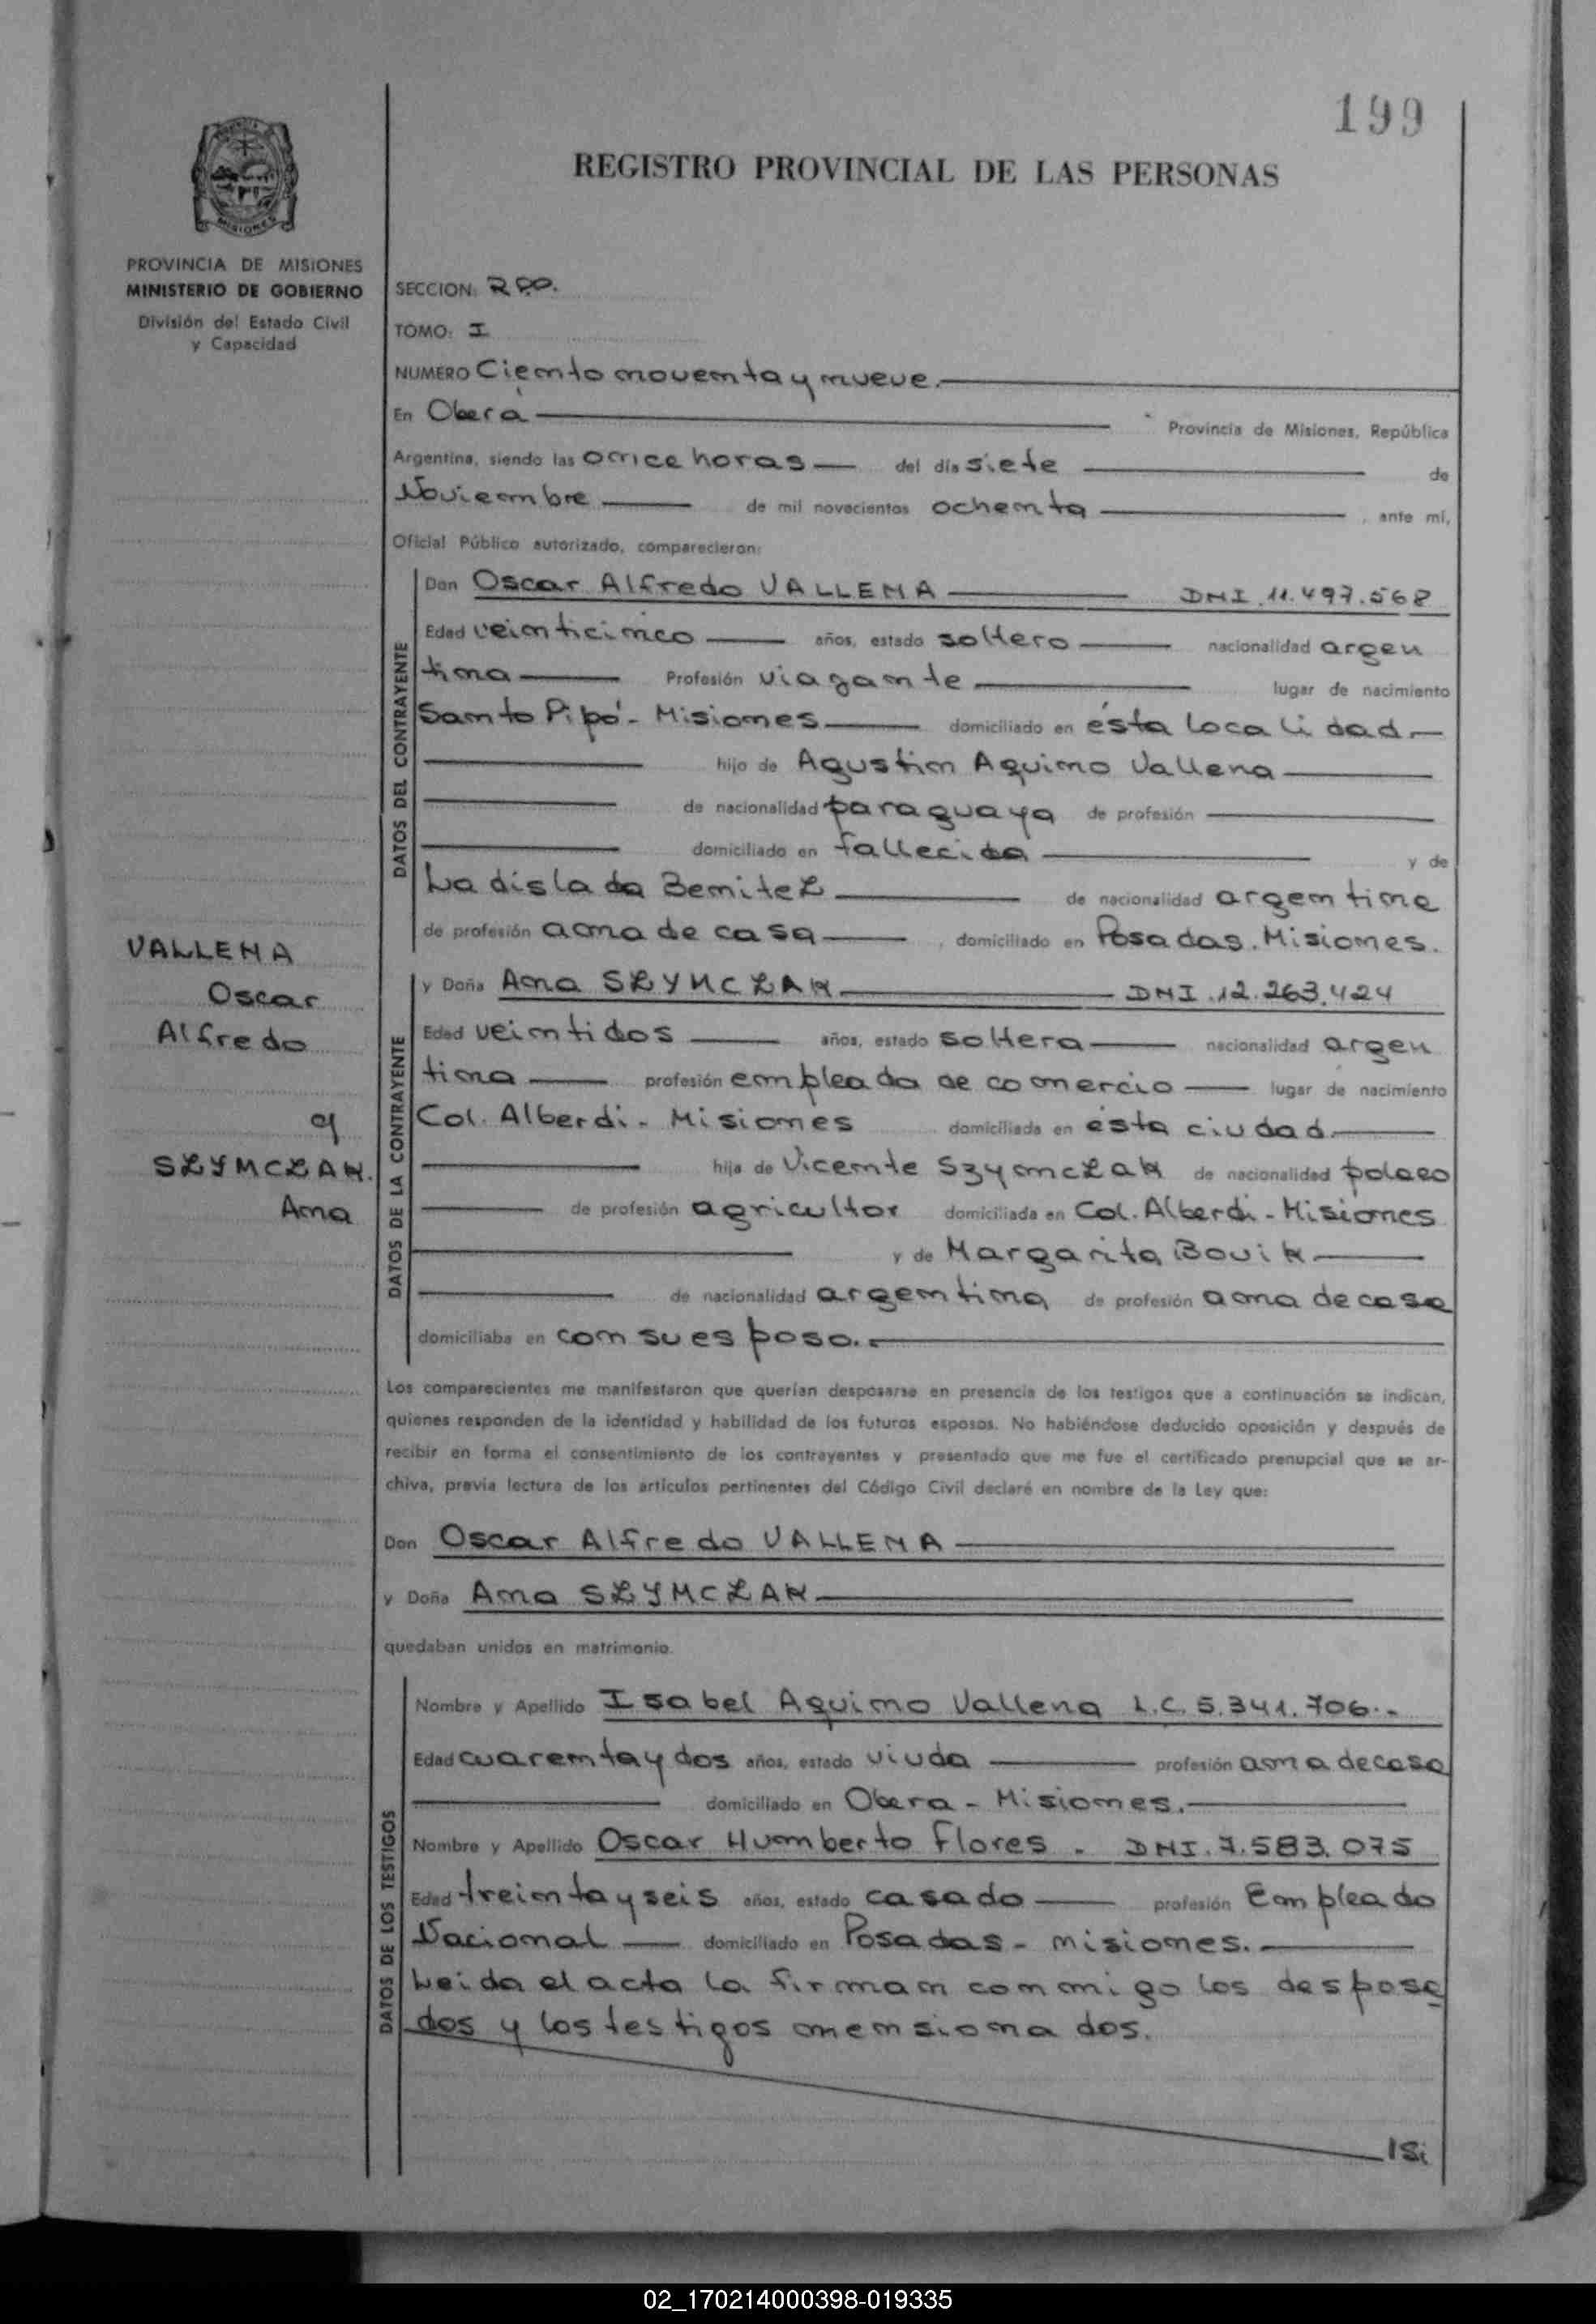 199
REGISTRO PROVINCIAL DE LAS PERSONAS
MISIONES
PROVINCIA DE MISIONES
MINISTERIO DE GOBIERNO
División del Estado Civil
y Capacidad
SECCION:
TOMO: I
NUMERO Ciento noventa y nueve.
En Oberá Provincia de Misiones, República
Argentina, siendo las once horas del día siete de
Noviembre de mil novecientos ochenta, ante mí,
Oficial Público autorizado, comparecieron:
DATOS DEL CONTRAYENTE
Don Oscar Alfredo VALLENA DNI.11.497.568
Edad veinticinco años, estado soltero nacionalidad argen
tina Profesión viagante lugar de nacimiento
Santo Pipó - Misiones domiciliado en ésta localidad.
hijo de Agustin Aquino Vallena
de nacionalidad paraguaya de profesión
domiciliado en fallecido y de
Ladislada Benitez de nacionalidad argentina
de profesión ama de casa, domiciliado en Posadas. Misiones.
VALLENA
Oscar
Alfredo
y
SZYMCZAK.
Ana
DATOS DE LA CONTRAYENTE
y Doña Ana SZYMCZAK DNI.12.263.424
Edad veintidos años, estado soltera nacionalidad argen
tina profesión empleada de comercio lugar de nacimiento
Col. Alberdi - Misiones domiciliada en ésta ciudad.
hija de Vicente Szymczak de nacionalidad polaco
de profesión agricultor domiciliada en Col. Alberdi - Misiones
y de Margarita Bovik
de nacionalidad argentina de profesión ama de casa
domiciliaba en con su esposo.
Los comparecientes me manifestaron que querían desposarse en presencia de los testigos que a continuación se indican,
quienes responden de la identidad y habilidad de los futuros esposos. No habiéndose deducido oposición y después de
recibir en forma el consentimiento de los contrayentes y presentado que me fue el certificado prenupcial que se ar-
chiva, previa lectura de los artículos pertinentes del Código Civil declaré en nombre de la Ley que:
Don Oscar Alfredo VALLENA
y Doña Ana SZYMCZAK
quedaban unidos en matrimonio.
DATOS DE LOS TESTIGOS
Nombre y Apellido Isabel Aquino Vallena L.C. 5.341.706.-
Edad cuarenta y dos años, estado viuda profesión ama de casa
domiciliado en Obera - Misiones.
Nombre y Apellido Oscar Humberto Flores - DNI. 7.583.075
Edad treinta y seis años, estado casado profesión Empleado
Nacional domiciliado en Posadas - misiones.
Leida el acta la firman conmigo los desposa
dos y los testigos mensionados.
02_170214000398-019335